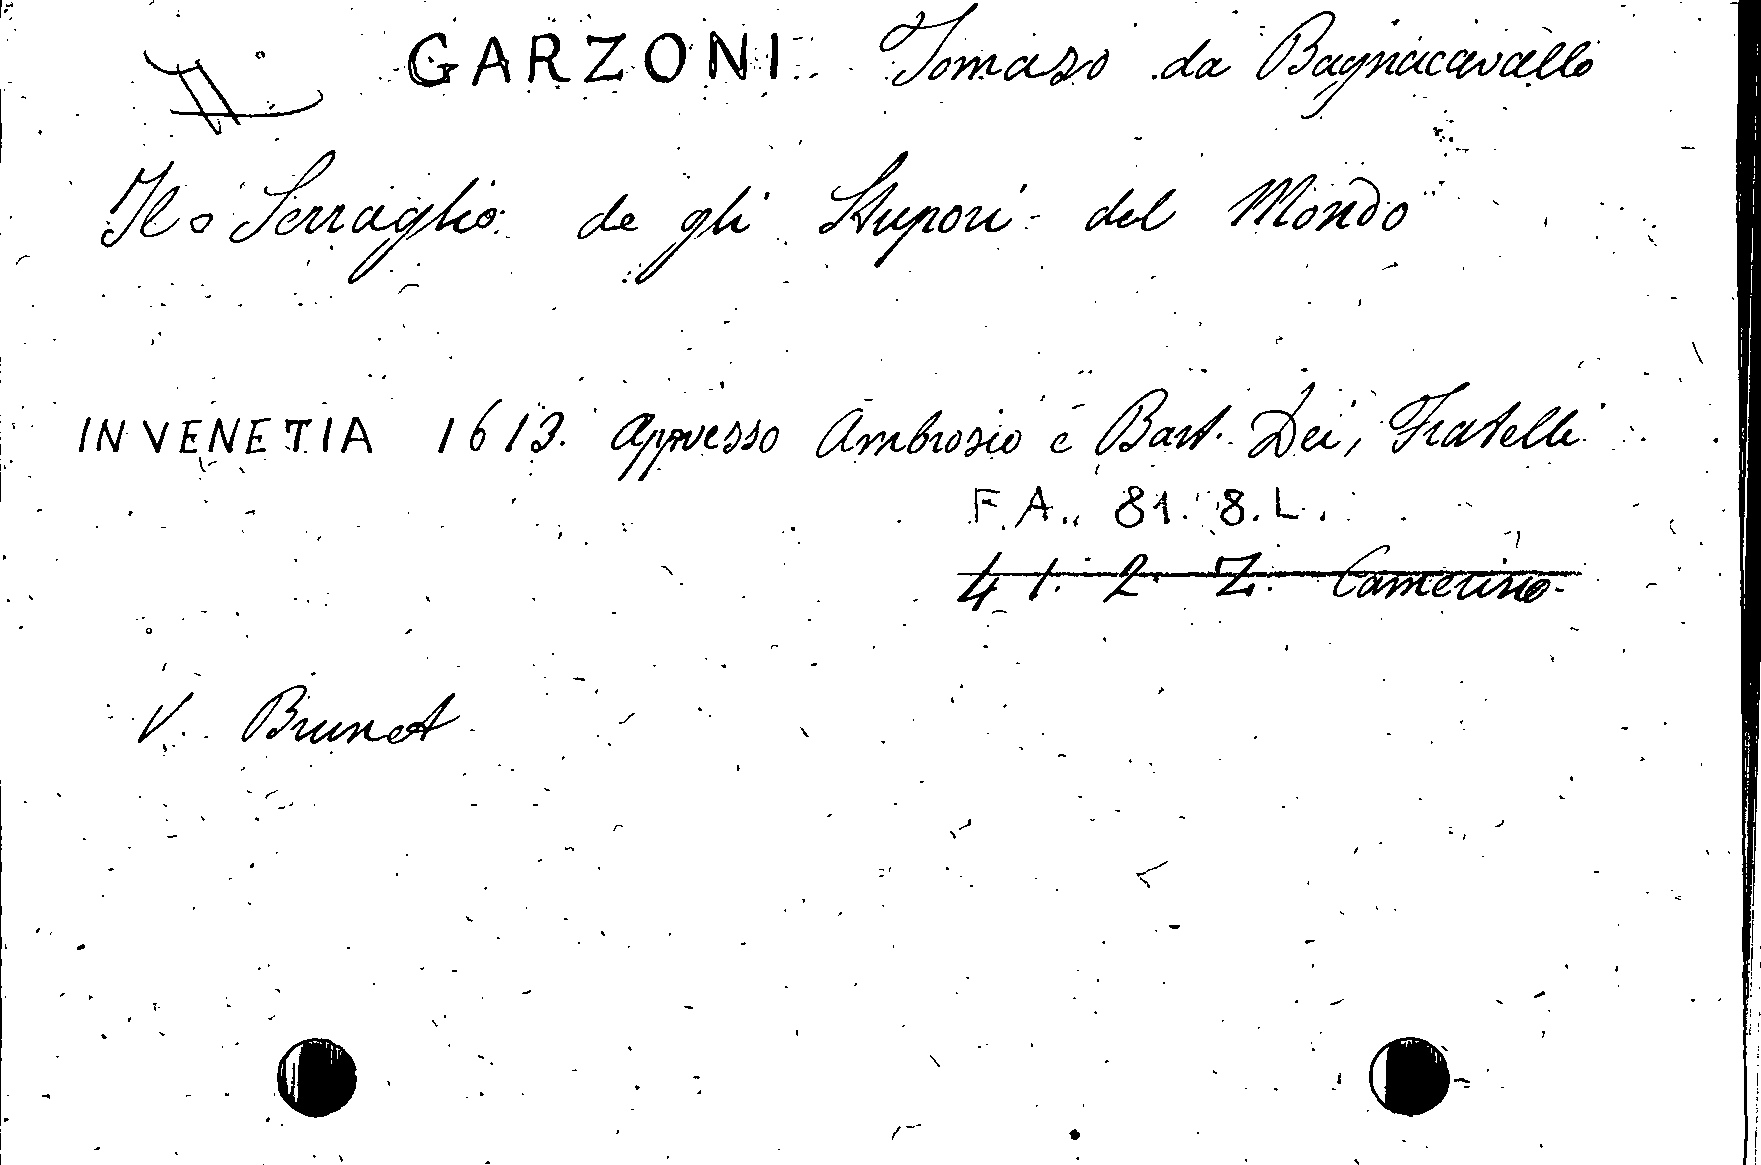 GARZONI Tomaso da Bagnacavallo
Il Serraglio de gli Stupori del Mondo
IN VENETIA 1613. Appresso Ambrosio e Bart. Dei, Fratelli
F.A. 81. 8. L.
41. 2. Z. Camerino
V. Brunet